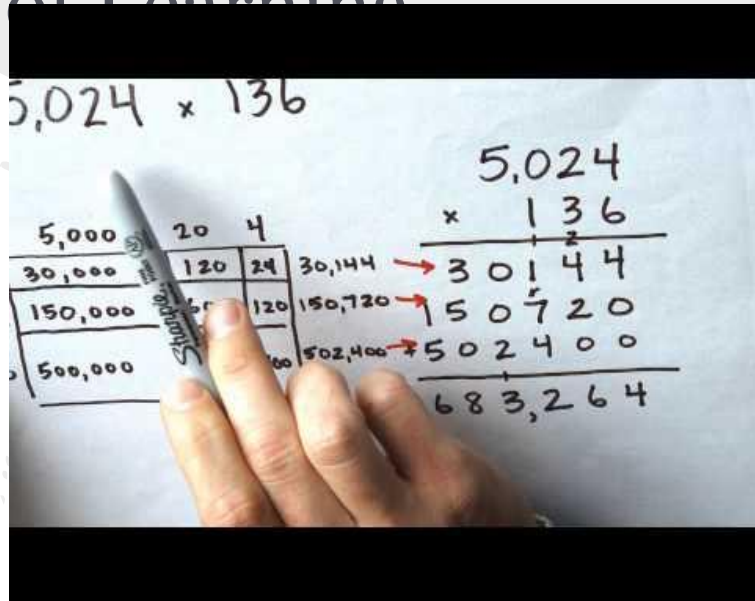 5,024 × 136
5,000 20 4
30,000 120 24 30,144
150,000 120 150,720
500,000 502,400
5,024
× 136
30144
150720
+502400
683,264
Sharpie